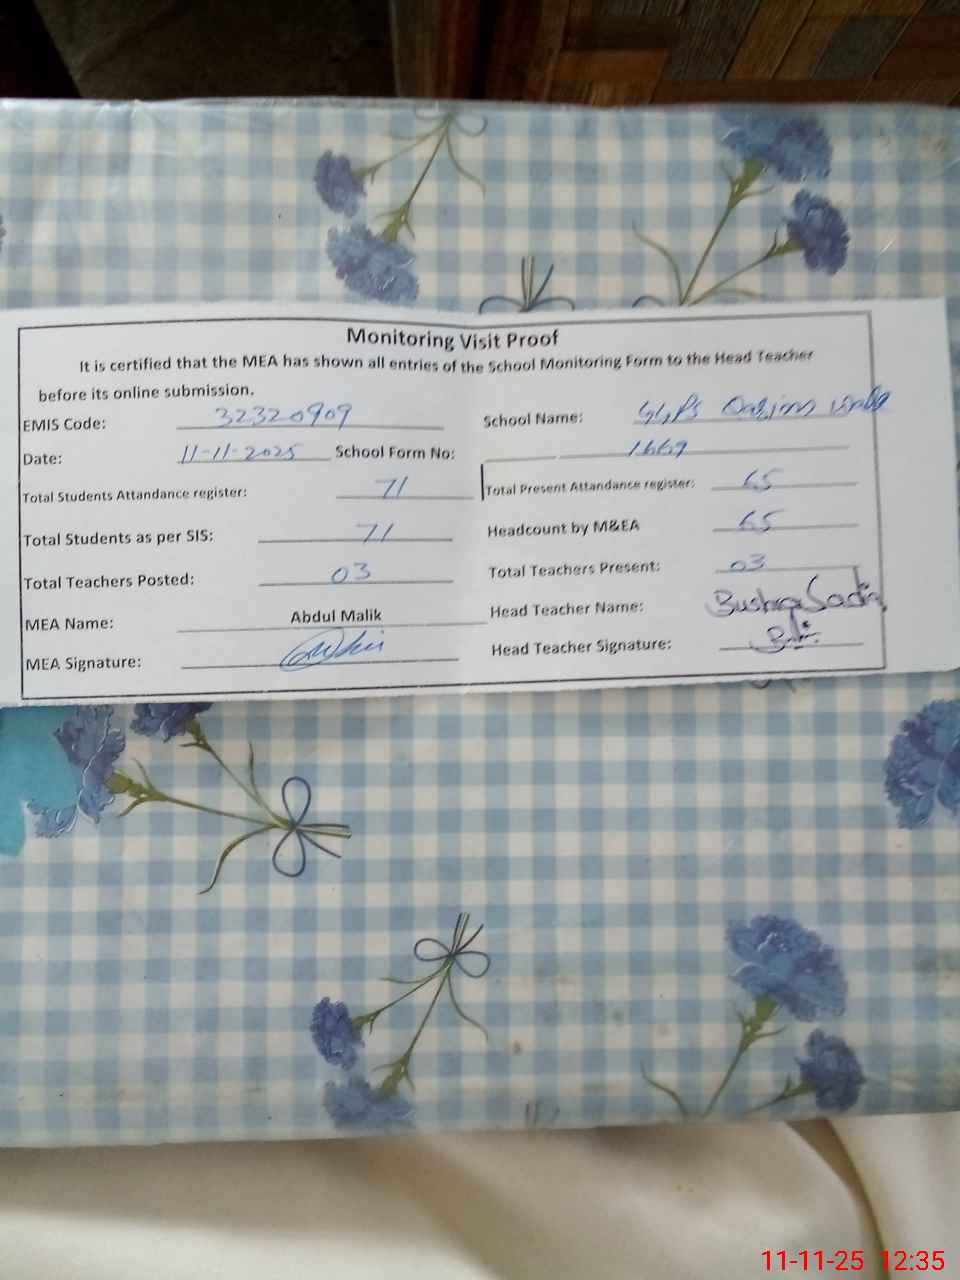 Monitoring Visit Proof
It is certified that the MEA has shown all entries of the School Monitoring Form to the Head Teacher
before its online submission.
EMIS Code: 32320909 School Name: GGPS Qasim
Date: 11-11-2025 School Form No: 1669
Total Students Attandance register: 71 Total Present Attandance register: 65
Total Students as per SIS: 71 Headcount by M&EA 65
Total Teachers Posted: 03 Total Teachers Present: 03
MEA Name: Abdul Malik Head Teacher Name: Bushra Sadiq
MEA Signature: Head Teacher Signature:
11-11-25 12:35